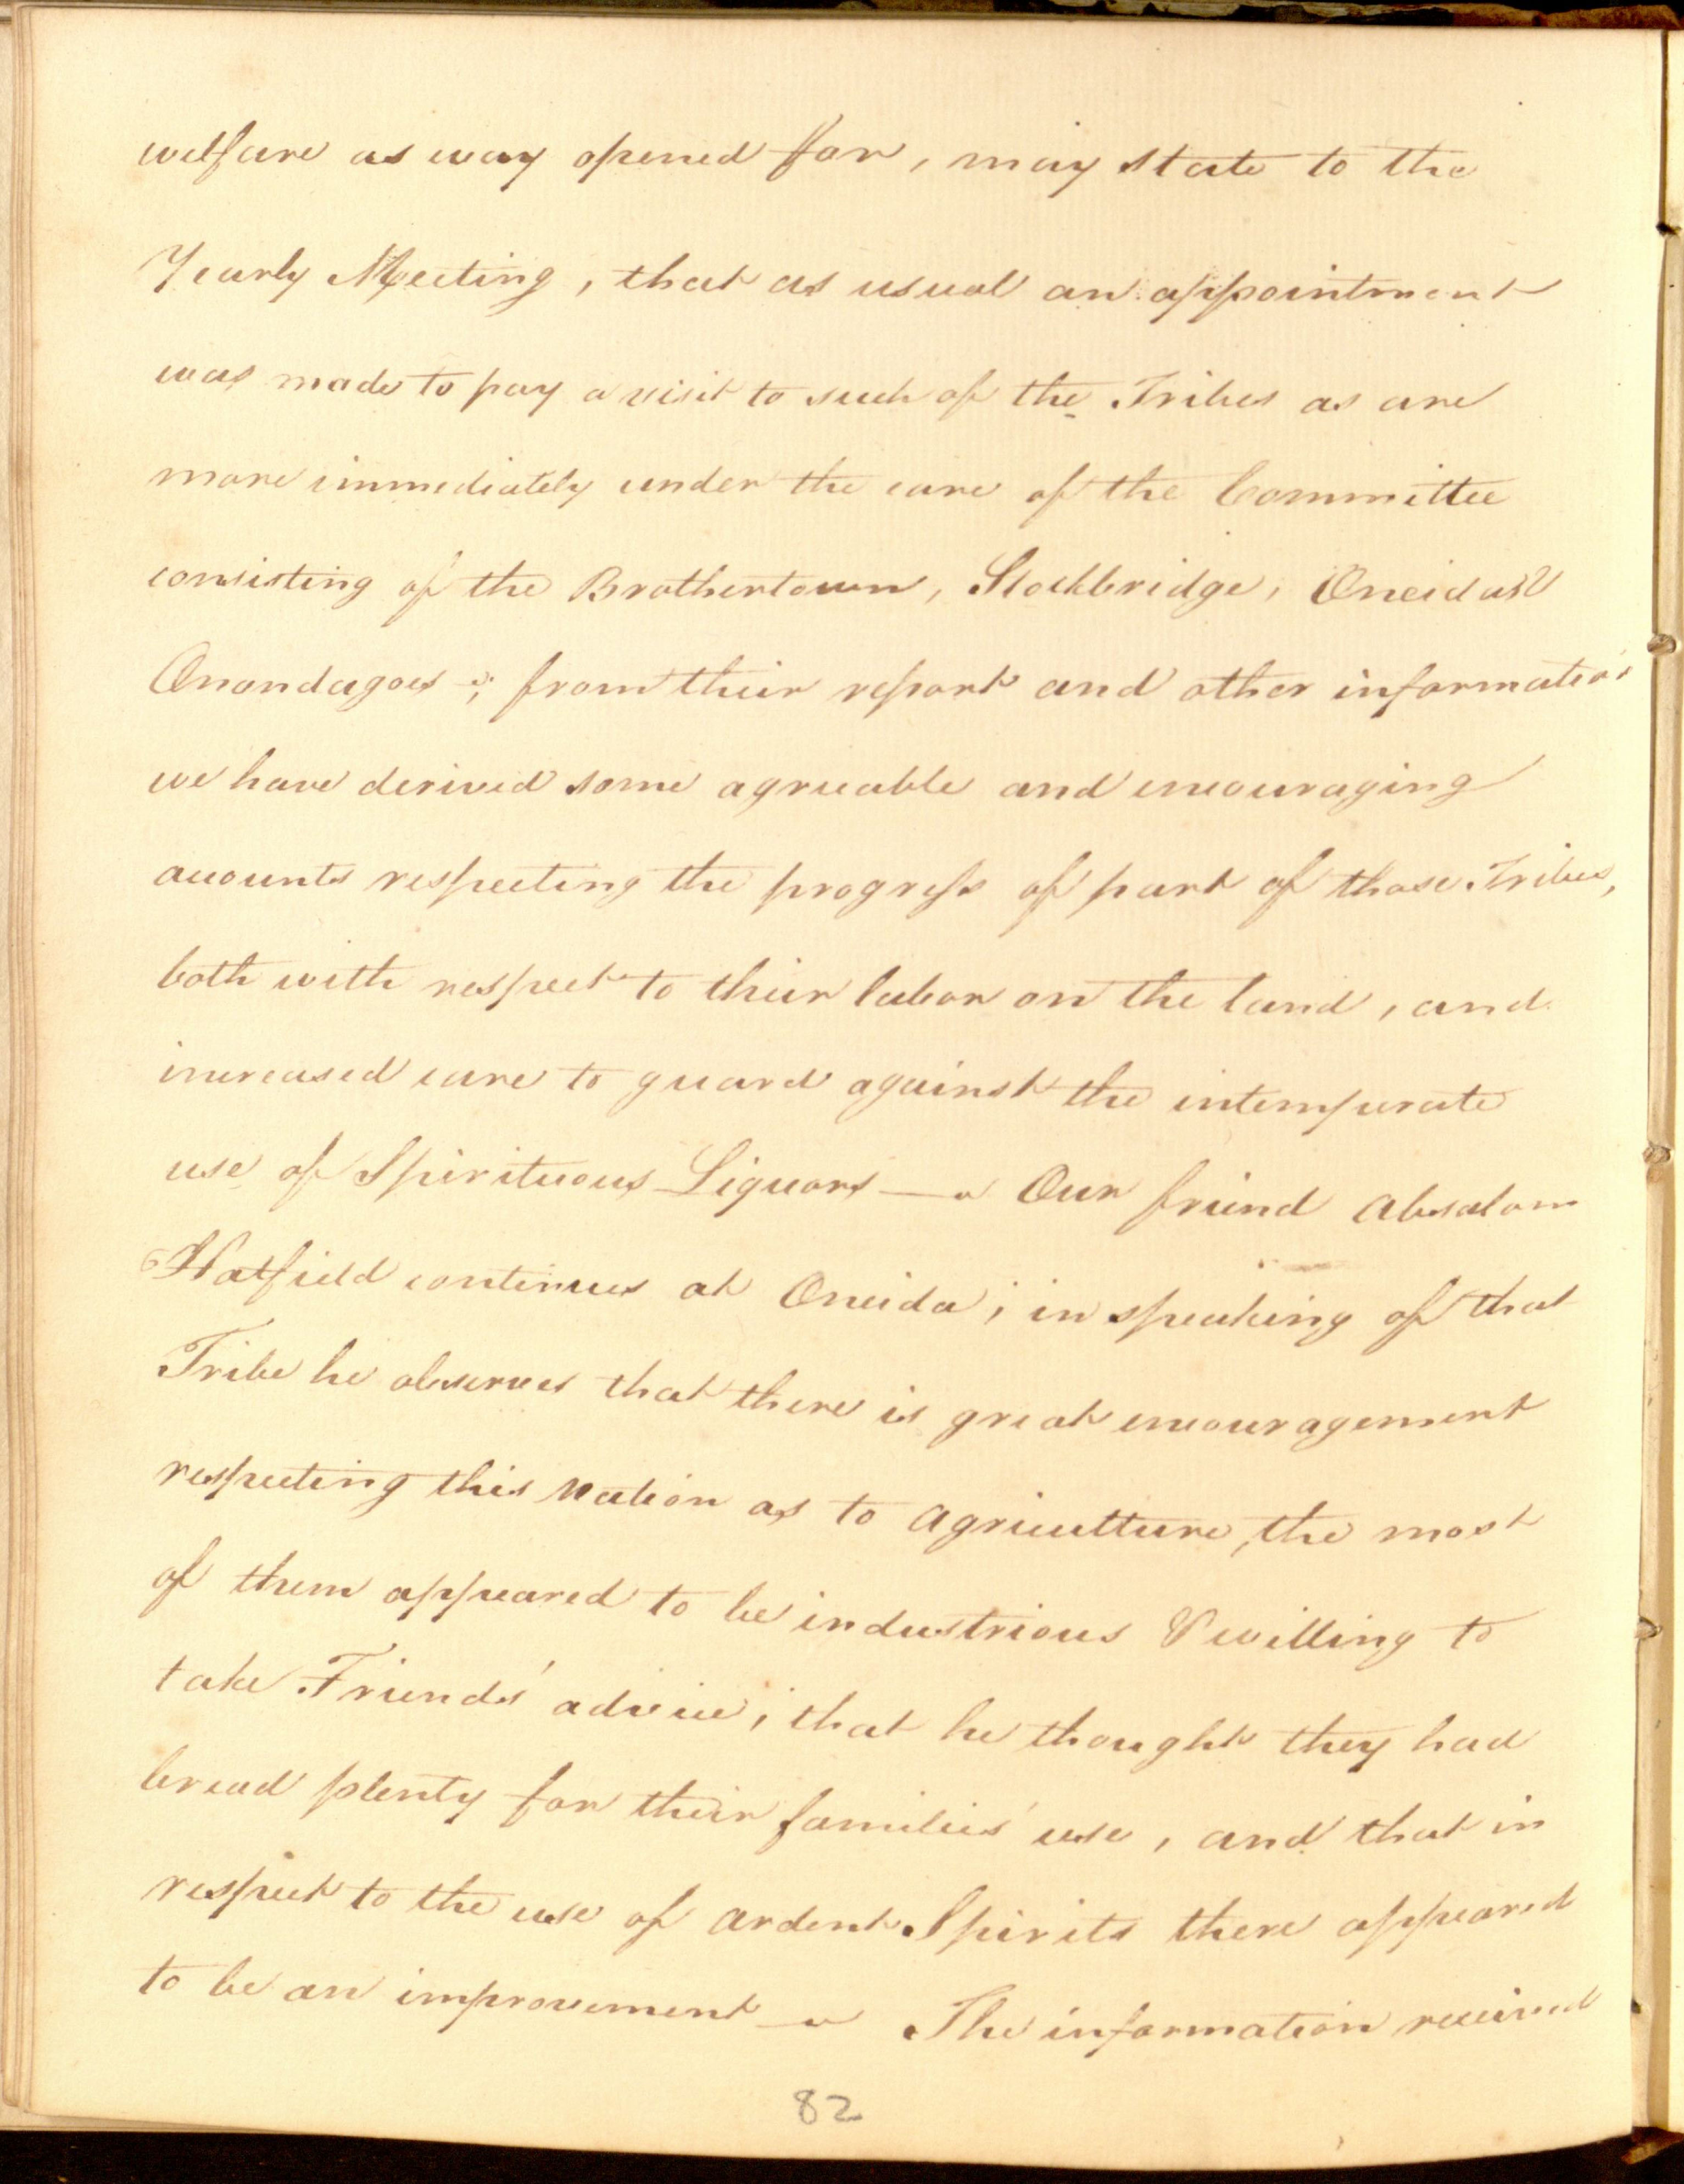 welfare as way opened for, may state to the
Yearly Meeting, that as usual an appointment
was made to pay a visit to such of the Tribes as are
more immediately under the care of the Committee
consisting of the Brothertown, Stockbridge, Oneidas &
Onondagoes -; from their report and other information
we have derived some agreeable and encouraging
accounts respecting the progress of part of those Tribes,
both with respect to their labor on the land, and
increased care to guard against the intemperate
use of Spirituous Liquors — Our friend Absalom
Hatfield continues at Oneida; in speaking of that
Tribe he observes that there is great encouragement
respecting this Nation as to Agriculture, the most
of them appeared to be industrious & willing to
take Friends' advice; that he thought they had
bread plenty for their families' use, and that in
respect to the use of ardent Spirits there appeared
to be an improvement — The information received
82